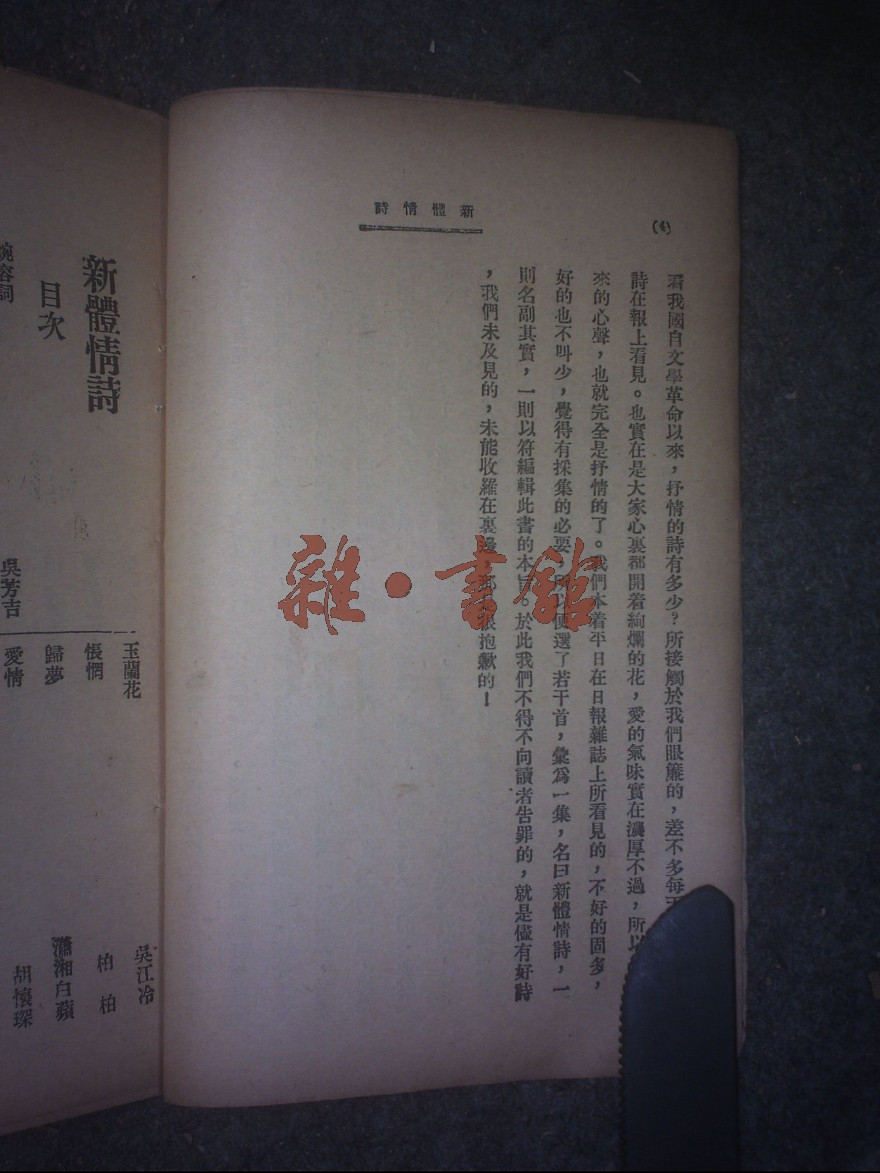 新體情詩
(4)
看我國自文學革命以來，抒情的詩有多少？所接觸於我們眼簾的，差不多每
詩在報上看見。也實在是大家心裏都開着絢爛的花，愛的氣味實在濃厚不過，所以
來的心聲，也就完全是抒情的了。我們本着平日在日報雜誌上所看見的，不好的固多，
好的也不叫少，覺得有採集的必要，所以便選了若干首，彙爲一集，名曰新體情詩，一
則名副其實，一則以符編輯此書的本旨。於此我們不得不向讀者告罪的，就是儘有好詩
，我們未及見的，未能收羅在裏邊，那是很抱歉的！
雜·書館
新體情詩
目次
婉容詞 吳芳吉
玉蘭花 吳江冷
悵惘 柏柏
歸夢 瀟湘白蘋
愛情 胡懷琛